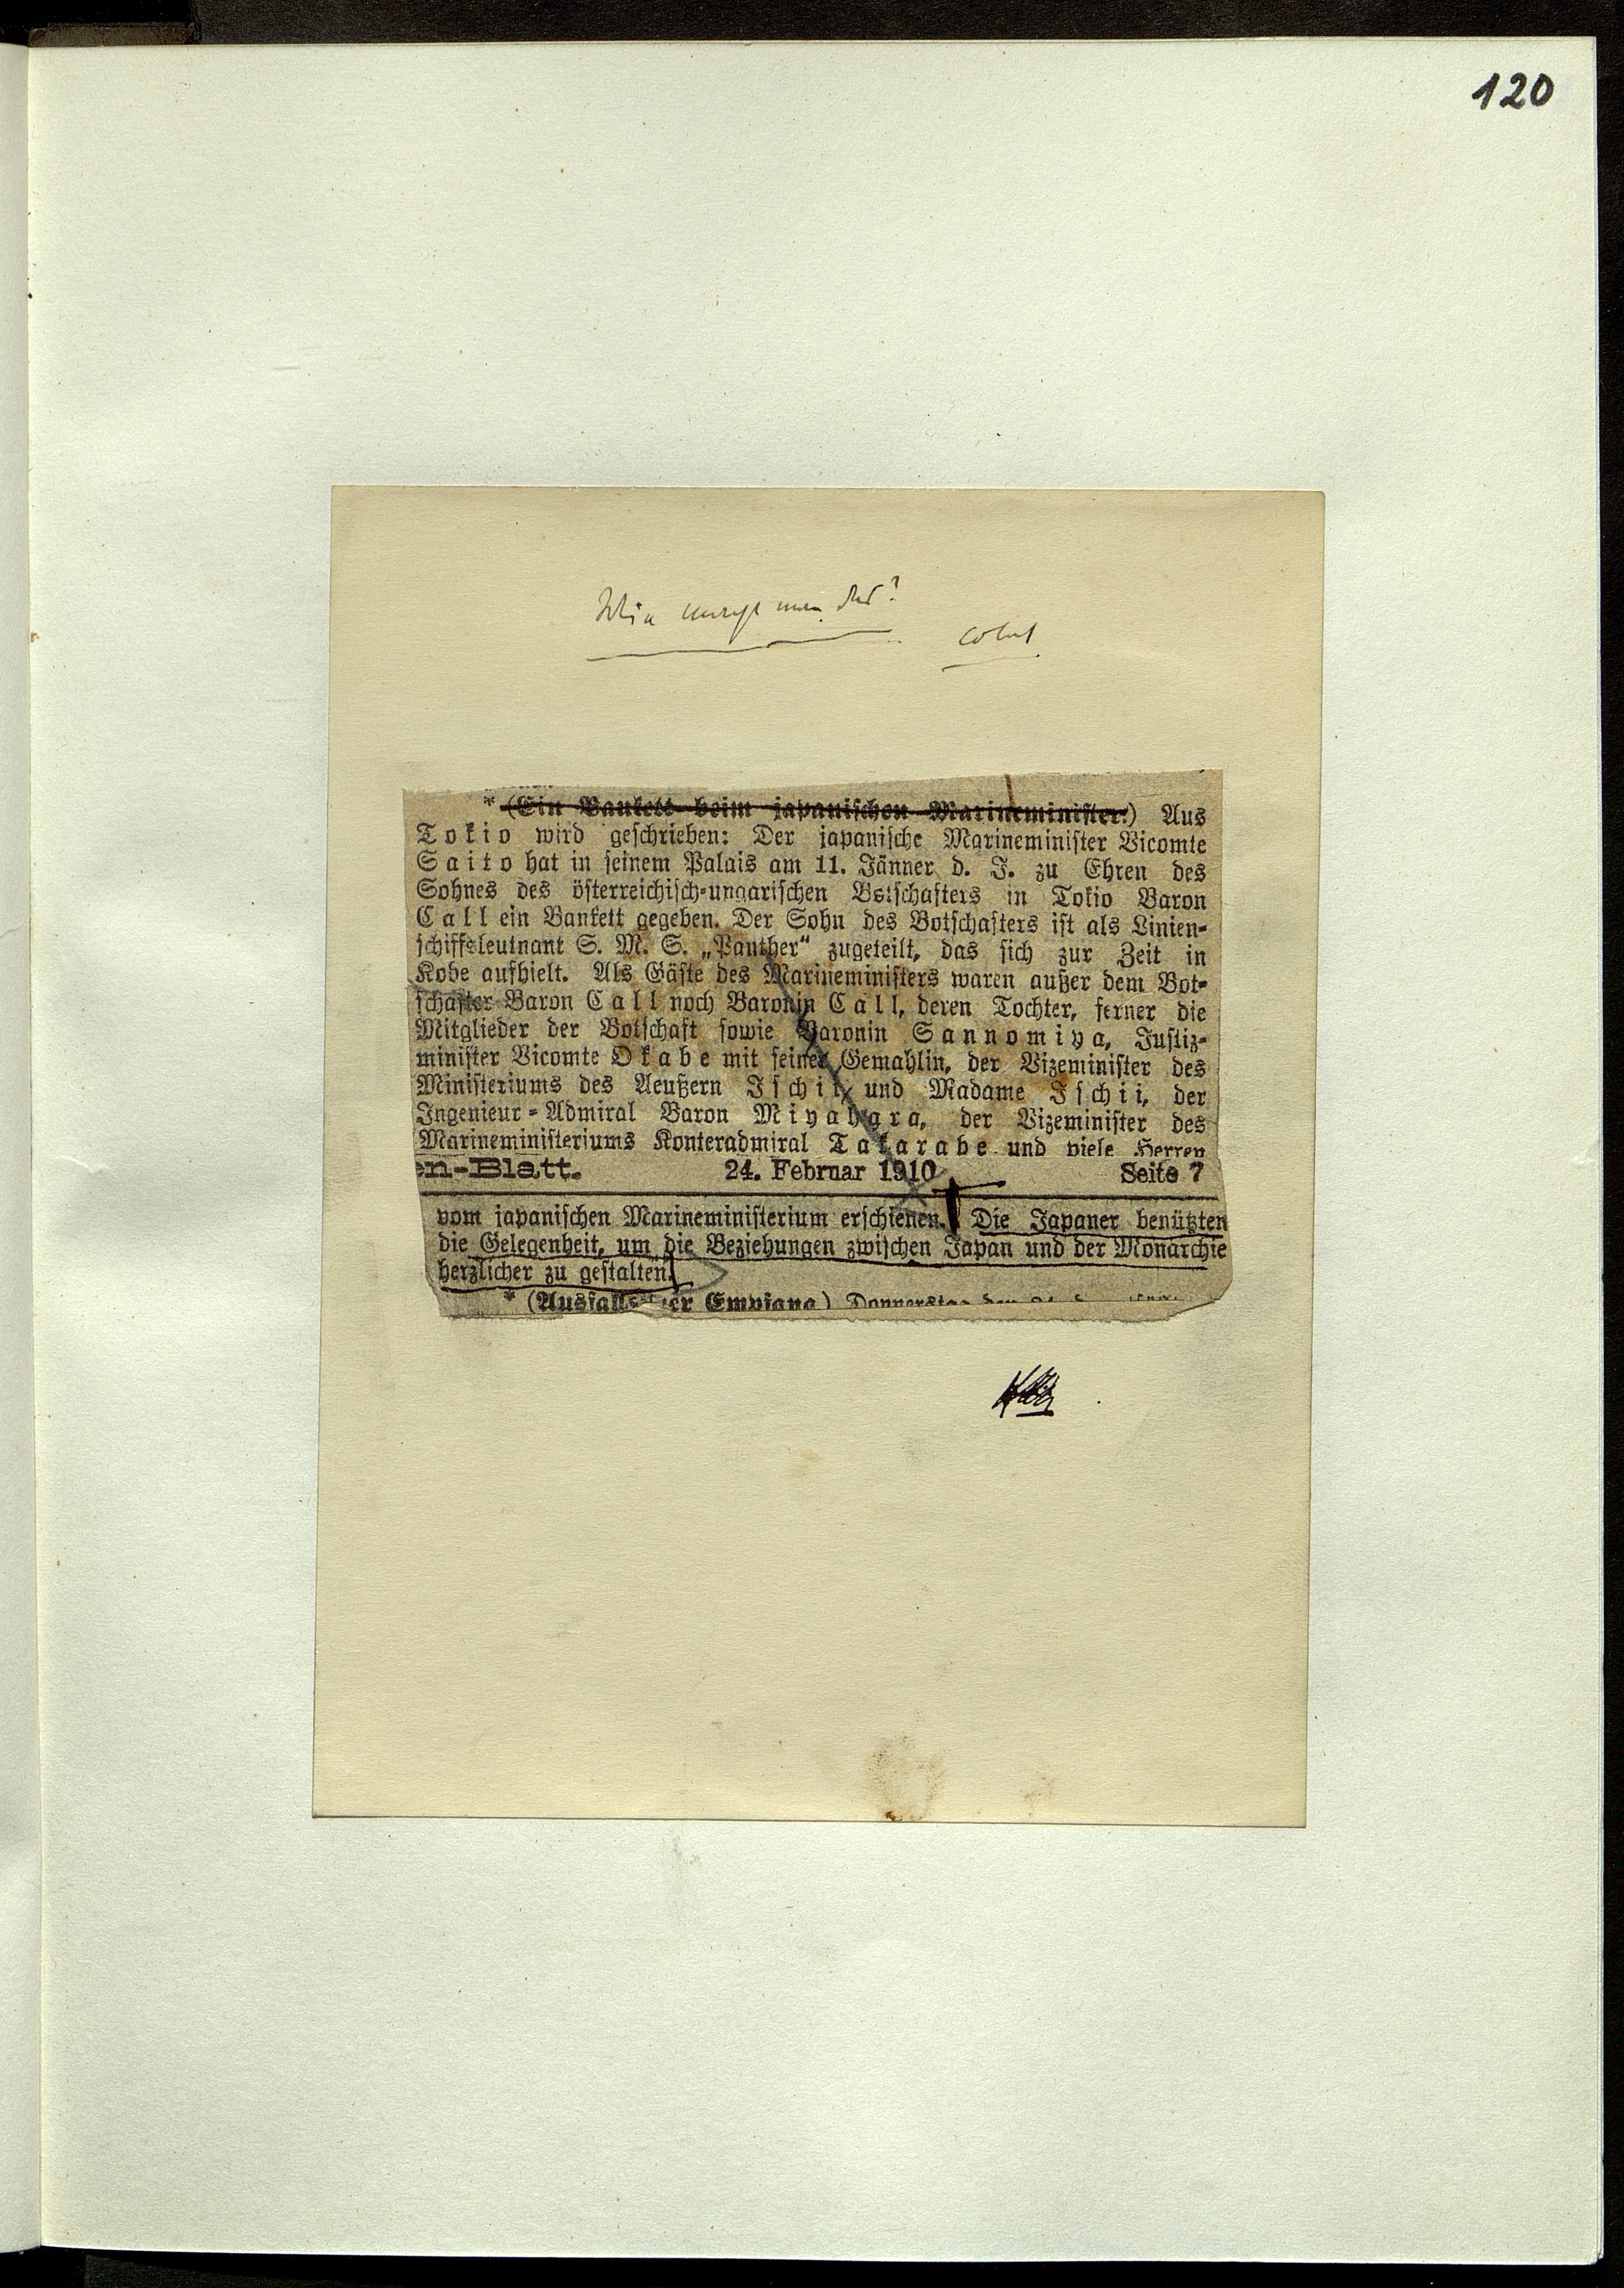 120
Wie macht man das?
* (Ein Bankett beim japanischen Marineminister.) Aus
Tokio wird geschrieben: Der japanische Marineminister Vicomte
Saito hat in seinem Palais am 11. Jänner d. J. zu Ehren des
Sohnes des österreichisch-ungarischen Botschafters in Tokio Baron
Call ein Bankett gegeben. Der Sohn des Botschafters ist als Linien-
schiffsleutnant S. M. S. „Panther“ zugeteilt, das sich zur Zeit in
Kobe aufhielt. Als Gäste des Marineministers waren außer dem Bot-
schafter Baron Call noch Baronin Call, deren Tochter, ferner die
Mitglieder der Botschaft sowie Baronin Sannomiya, Justiz-
minister Vicomte Okabe mit seiner Gemahlin, der Vizeminister des
Ministeriums des Aeußern Ischii und Madame Ischii, der
Ingenieur-Admiral Baron Miyahara, der Vizeminister des
Marineministeriums Konteradmiral Takarabe und viele Herren
en-Blatt. 24. Februar 1910 Seite 7
vom japanischen Marineministerium erschienen. Die Japaner benützten
die Gelegenheit, um die Beziehungen zwischen Japan und der Monarchie
herzlicher zu gestalten.
* (Ausfall der Empfang) Donnerstag den